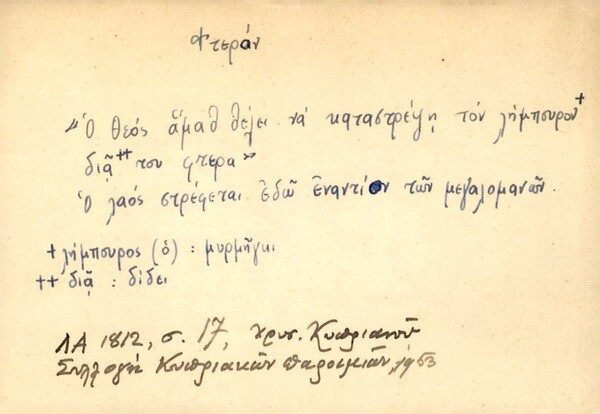 Φτερόν
"Ὁ θεός ἅμαθ θέλει νά καταστρέψῃ τόν λήμπουρον+
διᾷ++ του φτερα"
Ὁ λαός στρέφεται ἐδῶ ἐναντίον τῶν μεγαλομανῶν.
+ λήμπουρος (ὁ) : μυρμῆγκι
++ διᾷ : δίδει
ΛΑ 1812, σ. 17, Χρυσ. Κυπριανοῦ
Συλλογή Κυπριακῶν παροιμιῶν, 1953